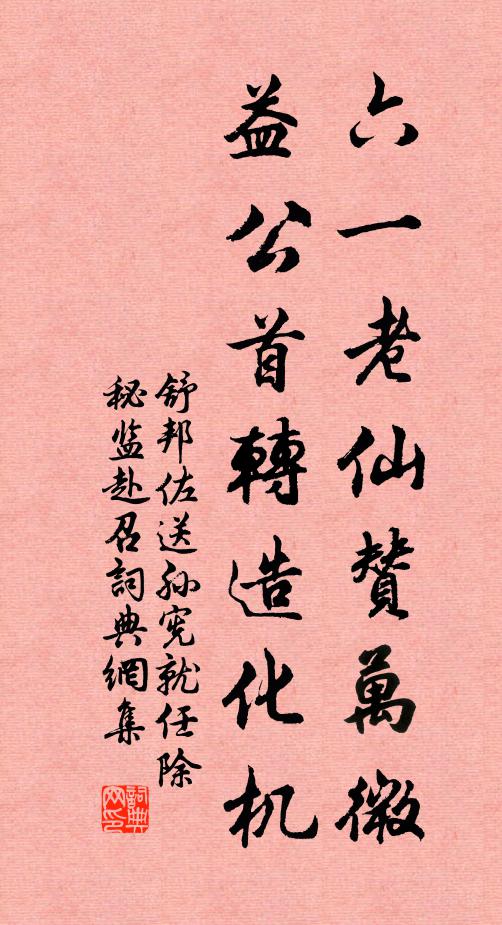 六一老仙赞萬微
益公首轉造化机
舒邦佐送孙宪就任除
秘监赴召詞典網集
詞典网印